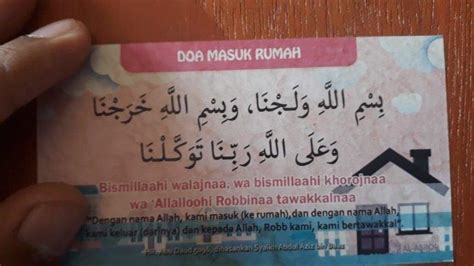 DOA MASUK RUMAH
بِسْمِ اللَّهِ وَلَجْنَا، وَبِسْمِ اللَّهِ خَرَجْنَا
وَعَلَى اللَّهِ رَبِّنَا تَوَكَّلْنَا
Bismillaahi walajnaa, wa bismillaahi khorojnaa
wa 'Allalloohi Robbinaa tawakkalnaa
"Dengan nama Allah, kami masuk (ke rumah),dan dengan nama Allah,
kami keluar (darinya) dan kepada Allah, Robb kami, kami bertawakkal".
Abu Daud 5096, dihasankan Syaikh Abdul Aziz bin Baaz